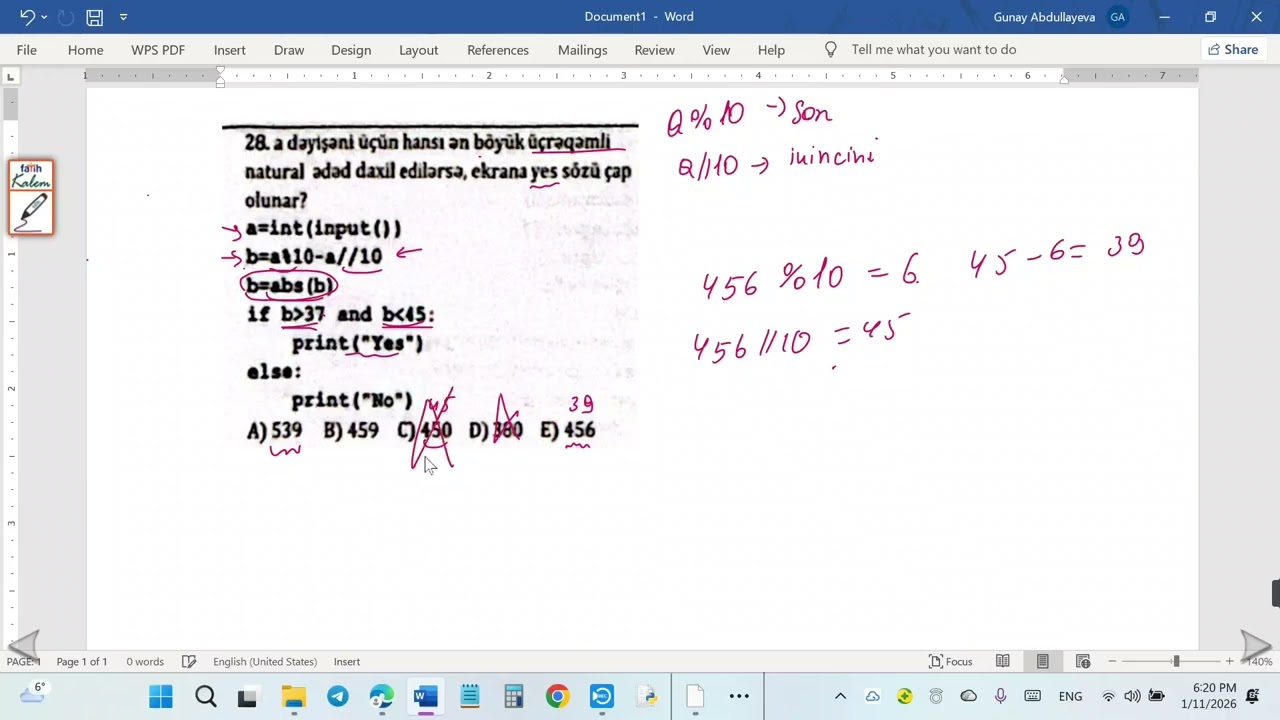 Document1 - Word
Gunay Abdullayeva GA
File Home WPS PDF Insert Draw Design Layout References Mailings Review View Help Tell me what you want to do Share
1 1 2 3 4 5 6 7
28. a dəyişəni üçün hansı ən böyük üçrəqəmli
natural ədəd daxil edilərsə, ekrana yes sözü çap
olunar?
a=int(input())
b=a%10-a//10
b=abs(b)
if b>37 and b<45:
print("Yes")
else:
print("No")
45 39
A) 539 B) 459 C) 450 D) 380 E) 456
a%10 -> Son
a//10 -> ikincini
456 %10 = 6 45 - 6 = 39
456 //10 = 45
fatih
Kalem
1
2
3
PAGE: 1 Page 1 of 1 0 words English (United States) Insert Focus 140%
6°
ENG
6:20 PM
1/11/2026